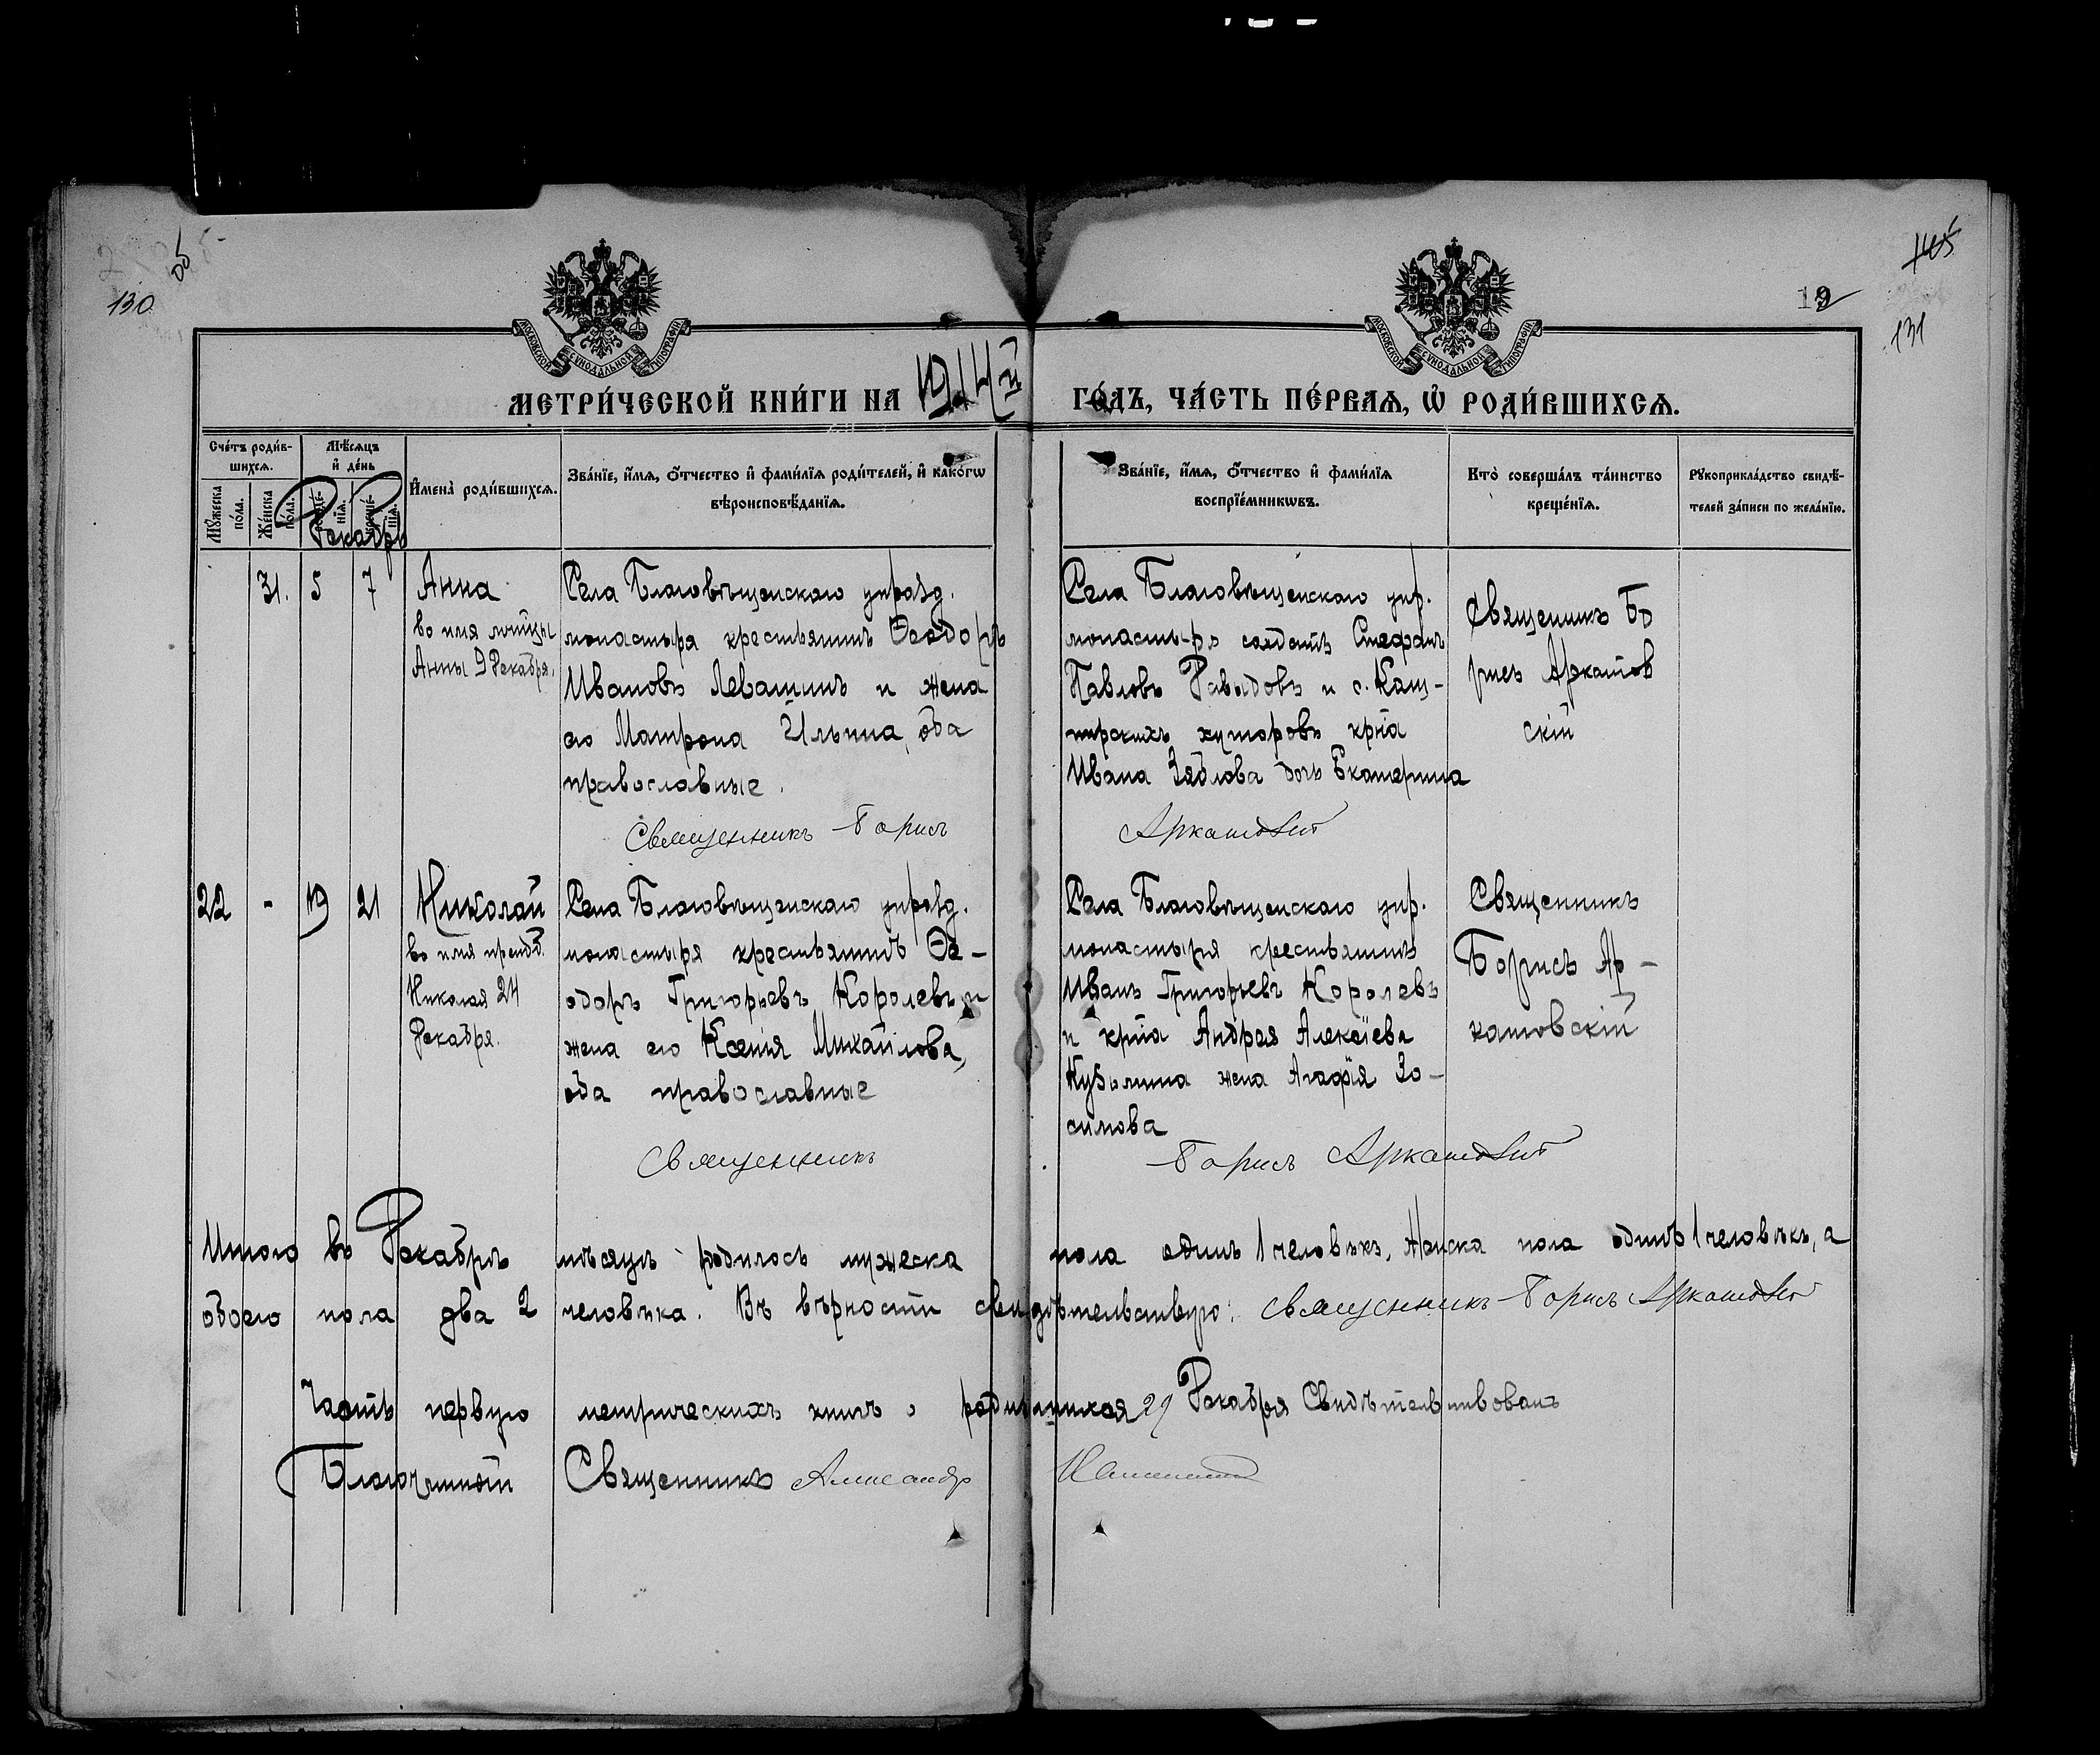 130
об
105
12
131
МОСКОВСКОЙ СѴНОДАЛЬНОЙ ТИПОГРАФІИ
МОСКОВСКОЙ СѴНОДАЛЬНОЙ ТИПОГРАФІИ
МЕТРИ́ЧЕСКОЙ КНИ́ГИ НА 1914й ГО́ДЪ, ЧА́СТЬ ПЕ́РВАѦ, Ѡ҆ РОДИ́ВШИХСѦ.
Сче́тъ роди́в-
шихсѧ.
Мѣ́сѧцъ
и҆ де́нь
Мꙋ́жеска
по́ла.
Же́нска
по́ла.
рожде́-
нїѧ.
креще́-
нїѧ.
И҆мена̀ роди́вшихсѧ.
Зва́нїе, и҆́мѧ, о҆́тчество и҆ фами́лїѧ роди́телей, и҆ како́гѡ
вѣроисповѣ́данїѧ.
Зва́нїе, и҆́мѧ, о҆́тчество и҆ фами́лїѧ
воспрїе́мникѡвъ.
Кто̀ соверша́лъ та́инство
креще́нїѧ.
Рꙋкоприкла́дство свидѣ́-
телей за́писи по жела́нїю.
Декабрь
31. 5 7
Анна
во имя
Анны 9 Декабря.
Села Благовѣщенскаго упразд.
монастыря крестьянинъ Ѳеодоръ
Ивановъ Левашинъ и жена
его Матрона Ильина, оба
православные.
Села Благовѣщенскаго упр.
монаст-ря солдатъ Стефанъ
Павловъ Давыдовъ и с. Каш-
пирскихъ хуторовъ крна
Ивана Зяблова дочь Екатерина
Священникъ Бо
рисъ Аркатов
скій
Священникъ Борисъ Аркатовскій
22 - 19 21
Николай
во имя препод.
Николая 24
Декабря.
Села Благовѣщенскаго упразд.
монастыря крестьянинъ Ѳе-
одоръ Григорьевъ Королевъ и
жена его Ксенія Михайлова,
оба православные
Села Благовѣщенскаго упр.
монастыря крестьянинъ
Иванъ Григорьевъ Королевъ
и крна Андрея Алексіева
Кузьмина жена Агафія Зо-
симова
Священникъ
Борисъ Ар-
катовскій
Священникъ Борисъ Аркатовскій
Итого въ Декабрѣ мѣсяцѣ родилось мужеска пола одинъ 1 человѣкъ, Женска пола одинъ 1 человѣкъ, а
обоего пола два 2 человѣка. Въ вѣрности свидѣтельствую: Священникъ Борисъ Аркатовскій
Часть первую метрическихъ книгъ о родившихся 29 Декабря Свидѣтельствовалъ
Благочинный Священникъ Александр